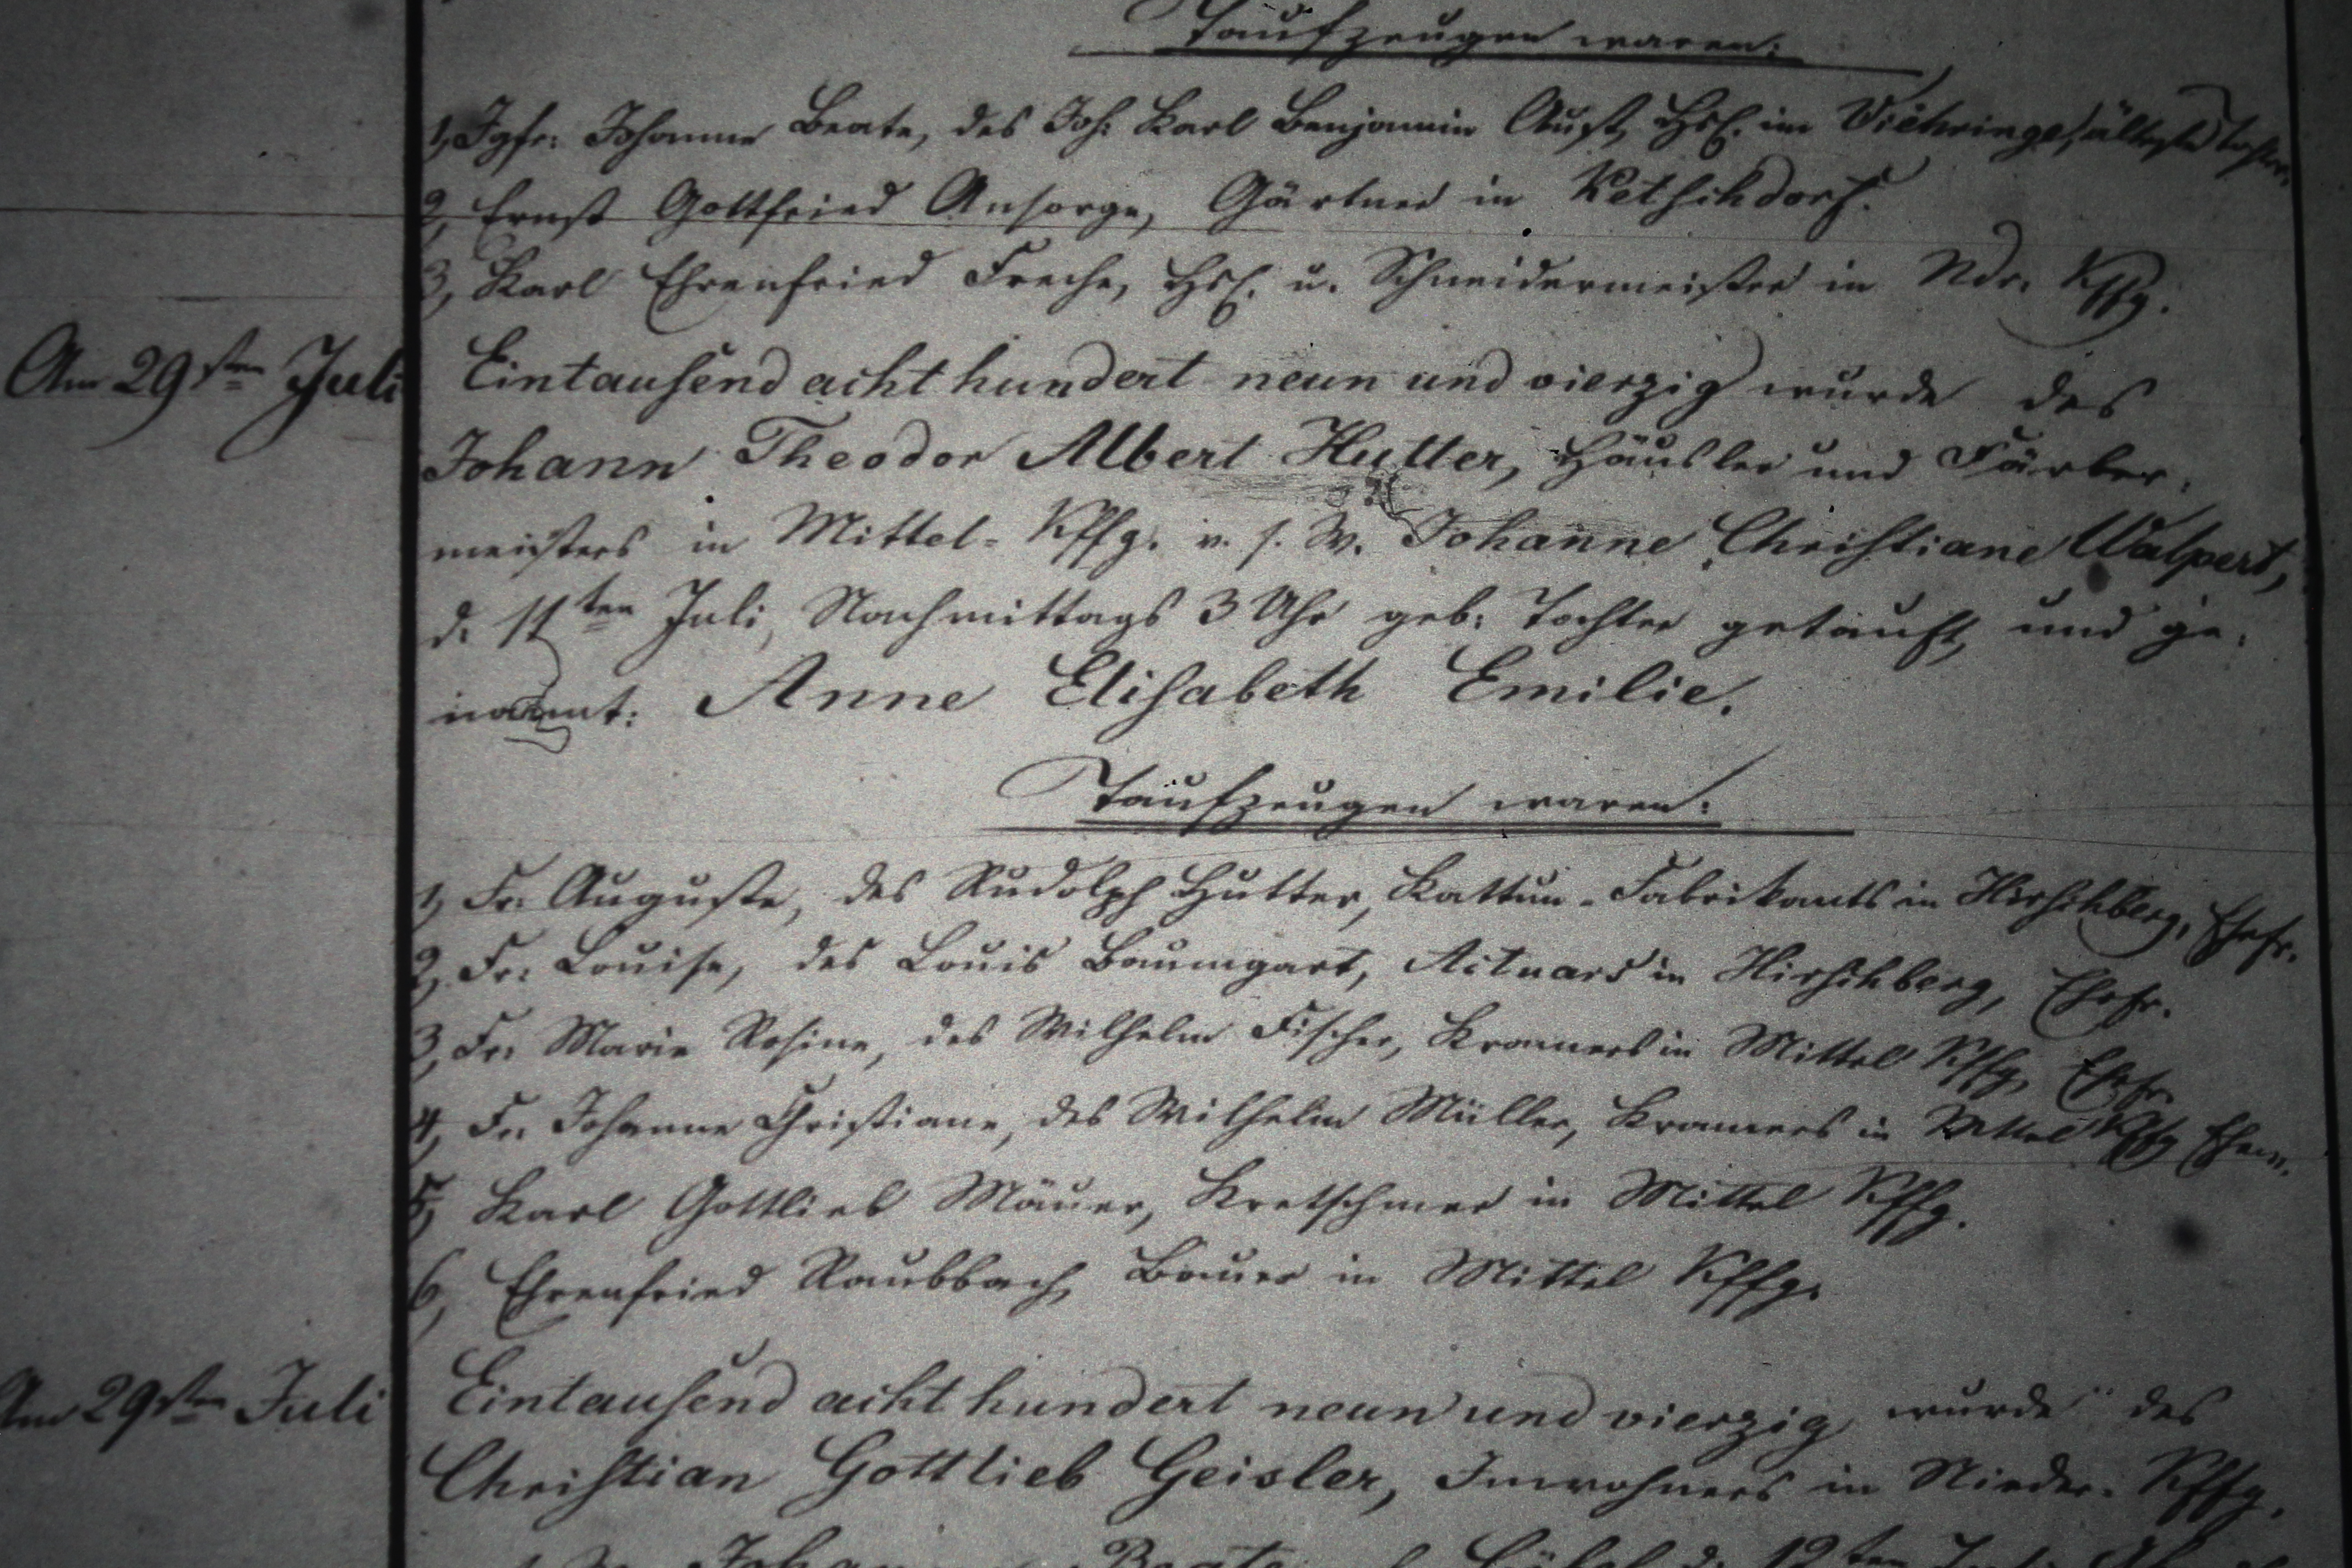 Taufzeugen waren:
1, Jgfr: Johanne Beate, des Joh: Karl Benjamin Aust, Hsl. im ältste Tochter.
2, Ernst Gottfried Ansorge, Gärtner in Ketschdorf.
3, Karl Ehrenfried Freche, Hsl. u. Schneidermeister in Ndr. Kffg.
Am 29sten Juli Eintausend acht hundert neun und vierzig wurde des
Johann Theodor Albert Hutter, Häusler und Färber-
meisters in Mittel-Kffg. v. s. W. Johanne Christiane Walpert,
d. 11ten Juli, Nachmittags 3 Uhr geb: Tochter getauft und ge-
nannt: Anne Elisabeth Emilie.
Taufzeugen waren:
1, Fr: Auguste, des Rudolph Hutter, Kattun-Fabrikants in Hirschberg, Ehefr.
2, Fr: Louise, des Louis Baumgart, Actuars in Hirschberg, Ehefr.
3, Fr: Marie Rosine, des Wilhelm Fischer, Kramers in Mittel Kffg, Ehefr.
4, Fr: Johanne Christiane, des Wilhelm Müller, Kramers in Mittel Kffg
5, Karl Gottlieb Mäuer, Kretschmer in Mittel Kffg.
6, Ehrenfried Raubbach, Bauer in Mittel Kffg.
Am 29sten Juli Eintausend acht hundert neun und vierzig wurde des
Christian Gottlieb Geisler, Inwohners in Nieder-Kffg.